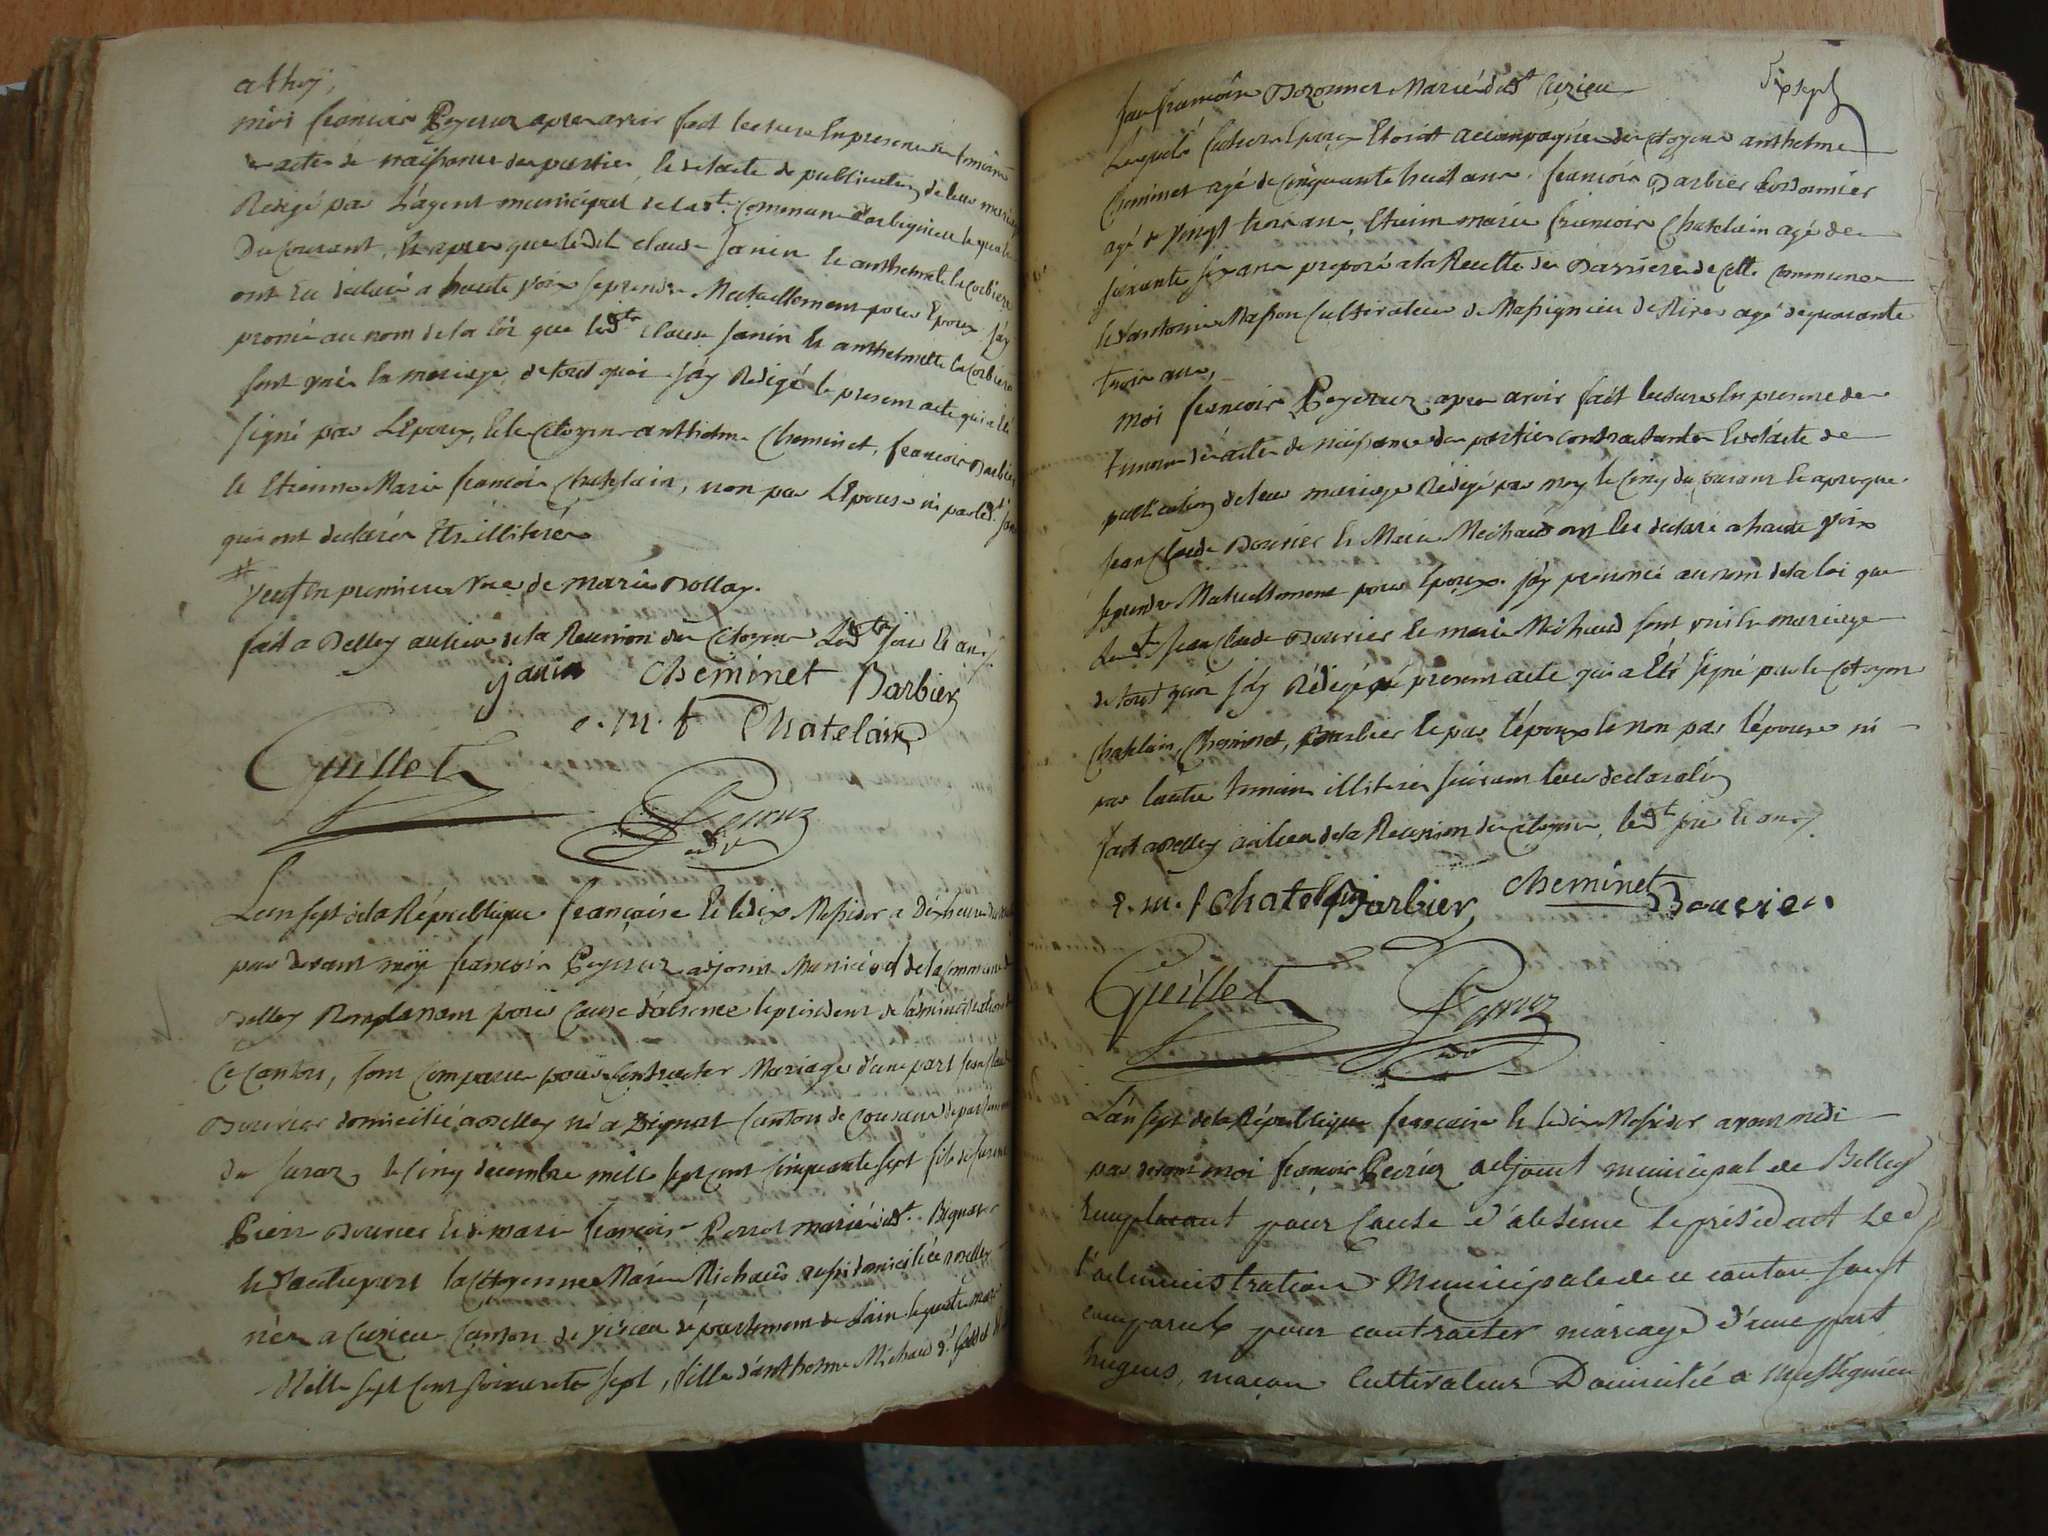 athoy,
moi francois Peyeruz apres avoir fait lecture En presence des temoins
actes de naissance des parties, Et de l'acte de publication de leur mariage
Redigé par L'agent municipal de lad.te Commune d'arbignieu le quatre
Du Courant, Et apres que ledit claude Janin Et anthelmette la Corbiere
ont Eu déclaré a haute voix se prendre Mutuellement pour Epoux. J'ay
prononcé au nom de la loi que lesd.ts claude Janin Et anthelmette la Corbiere
sont unis En mariage, de tout quoi J'ay Rédigé le present acte qui a été
signé par L'Epoux, Et le Citoyens anthelme Cheminet, francois Barbier
Et Etienne Marie francois Chatelain, non par L'Epouse ni par led.t
qui ont declarés Etre illiterés
veuf En premiere de marie Dollay.
fait a Belley au lieu de la Reunion des Citoyens Lesd.ts Jour Et an
janin Cheminet Barbier
e. m. f Chatelain
Guillet
Peyruz
adj.
L'an sept de la République française Et le dix Messidor a Dix heures du
par devant moy francois Peyeruz adjoint Municipal de la Commune de
Belley Remplacant pour Cause d'absence le president de l'administration
Ce Canton, sont Comparus pour Contracter Mariage d'une part Jean Claude
Bouvier domicilié a Belley né a Dignat Canton de Cousance departement
du Juraz, le cinq decembre mille sept cent cinquante sept fils de
Pierre Bouvier Et de marie francoise Perrot mariés aud.t Dignat
Et d'autre part la Citoyenne Marie Michaud aussi domiciliée a Belley
née a Cuzieu Canton de virieu département de L'ain le quatre mars
Mille sept Cent soixante sept, fille d'anthelme Michaud Et
Jeanfrancoise Bozonnet Mariés aud.t Cuzieu
Sixsept
Lesquels futurs Epoux Etoient accompagnés des citoyens anthelme
Cheminet agé de Cinquante huit ans, francois Barbier Cordonnier
agé de vingt trois ans, Etienne marie francois Chatelain agé de
soixante six ans preposé a la Recette des Barrieres de Cette Commune
Et d'antoine Masson Cultivateur de Massignieu de Rives agé de quarante
trois ans,
moi francois Peyeruz apres avoir fait lecture En presence de
temoins des actes de naissance des parties contractantes Et de l'acte de
publication de leur mariage Redigé par moy le Cinq du courant Et apres que
Jean Claude Bouvier Et Marie Michaud ont Eu declaré a haute voix
se prendre Mutuellement pour Epoux. j'ay prononcé au nom de la loi que
lesd.ts Jean Claude Bouvier Et marie Michaud sont unis En mariage
de tout quoi j'ay Rédigé le present acte qui a Eté signé par le Citoyen
Chatelain, Cheminet, Barbier Et par l'époux Et non par l'épouse ni
par l'autre temoin illiterés suivant leur declaration
fait a Belley au lieu de la Reunion des citoyens, lesd.t jour Et an
e. m. f Chatelain Barbier Cheminet Bouvier
Guillet
Peyruz
adj.
L'an sept de la République francaise Et le dix Messidor avant midi
par devant moi francois Peyruz adjoint municipal de Belley
Remplacant pour Cause d'absence le président de
l'administration Municipale de ce canton sont
comparus pour contracter mariage d'une part
hugues, maçon Cultivateur Domicilié a Massignieu